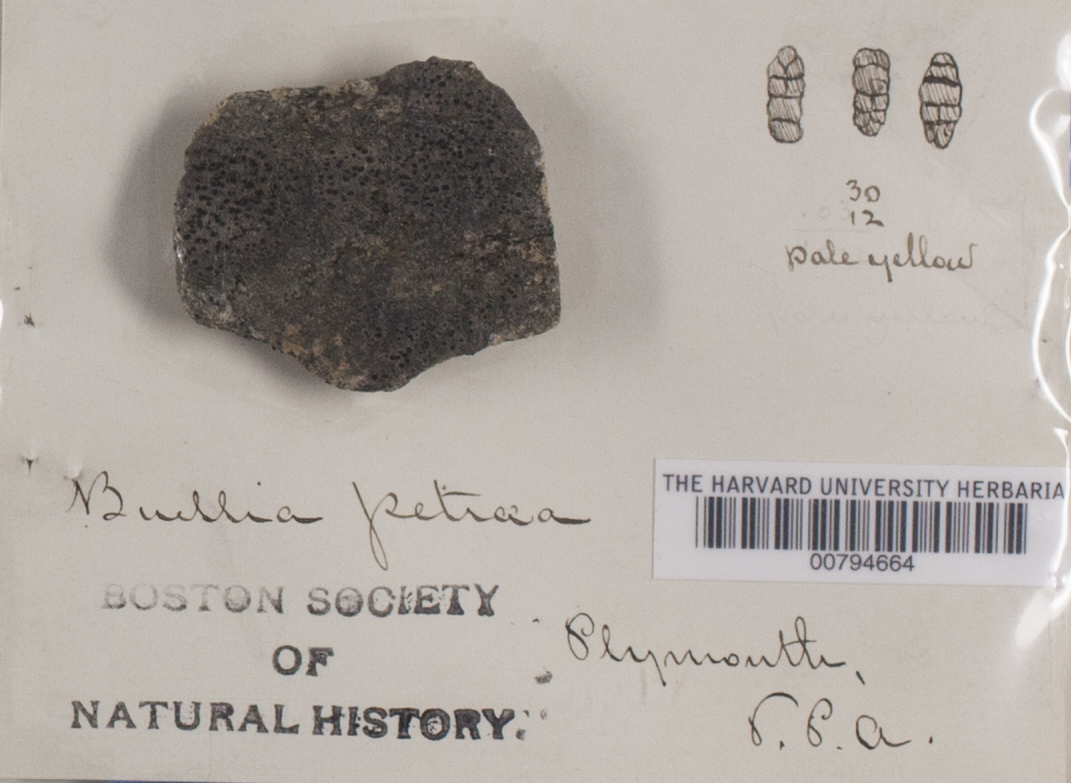 30
12
pale yellow
Buellia petraea
THE HARVARD UNIVERSITY HERBARIA
00794664
BOSTON SOCIETY
OF
NATURAL HISTORY.
Plymouth,